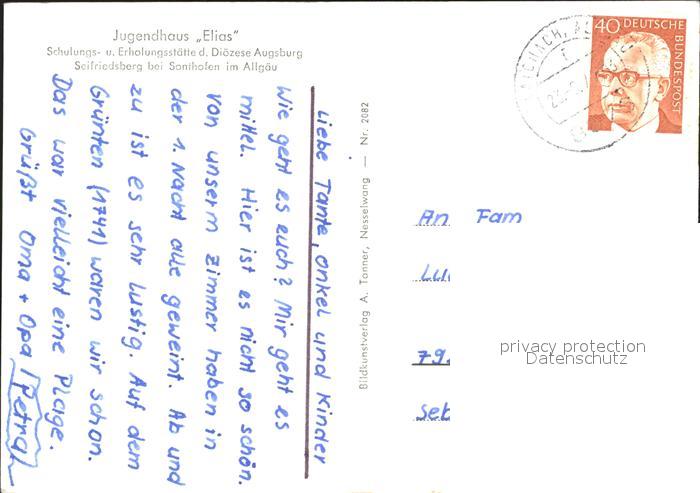 Jugendhaus „Elias"
Schulungs- u. Erholungsstätte d. Diözese Augsburg
Seifriedsberg bei Sonthofen im Allgäu
Liebe Tante, onkel und Kinder
Wie geht es euch? Mir geht es
mittel. Hier ist es nicht so schön.
Von unserm Zimmer haben in
der 1. Nacht alle geweint. Ab und
zu ist es sehr lustig. Auf dem
Grünten (1741) waren wir schon.
Das war vielleicht eine Plage.
Grüßt Oma + Opa! Petra
Bildkunstverlag A. Tanner, Nesselwang — Nr. 2082
40 DEUTSCHE BUNDESPOST
An Fam
79.
Seb
privacy protection
Datenschutz